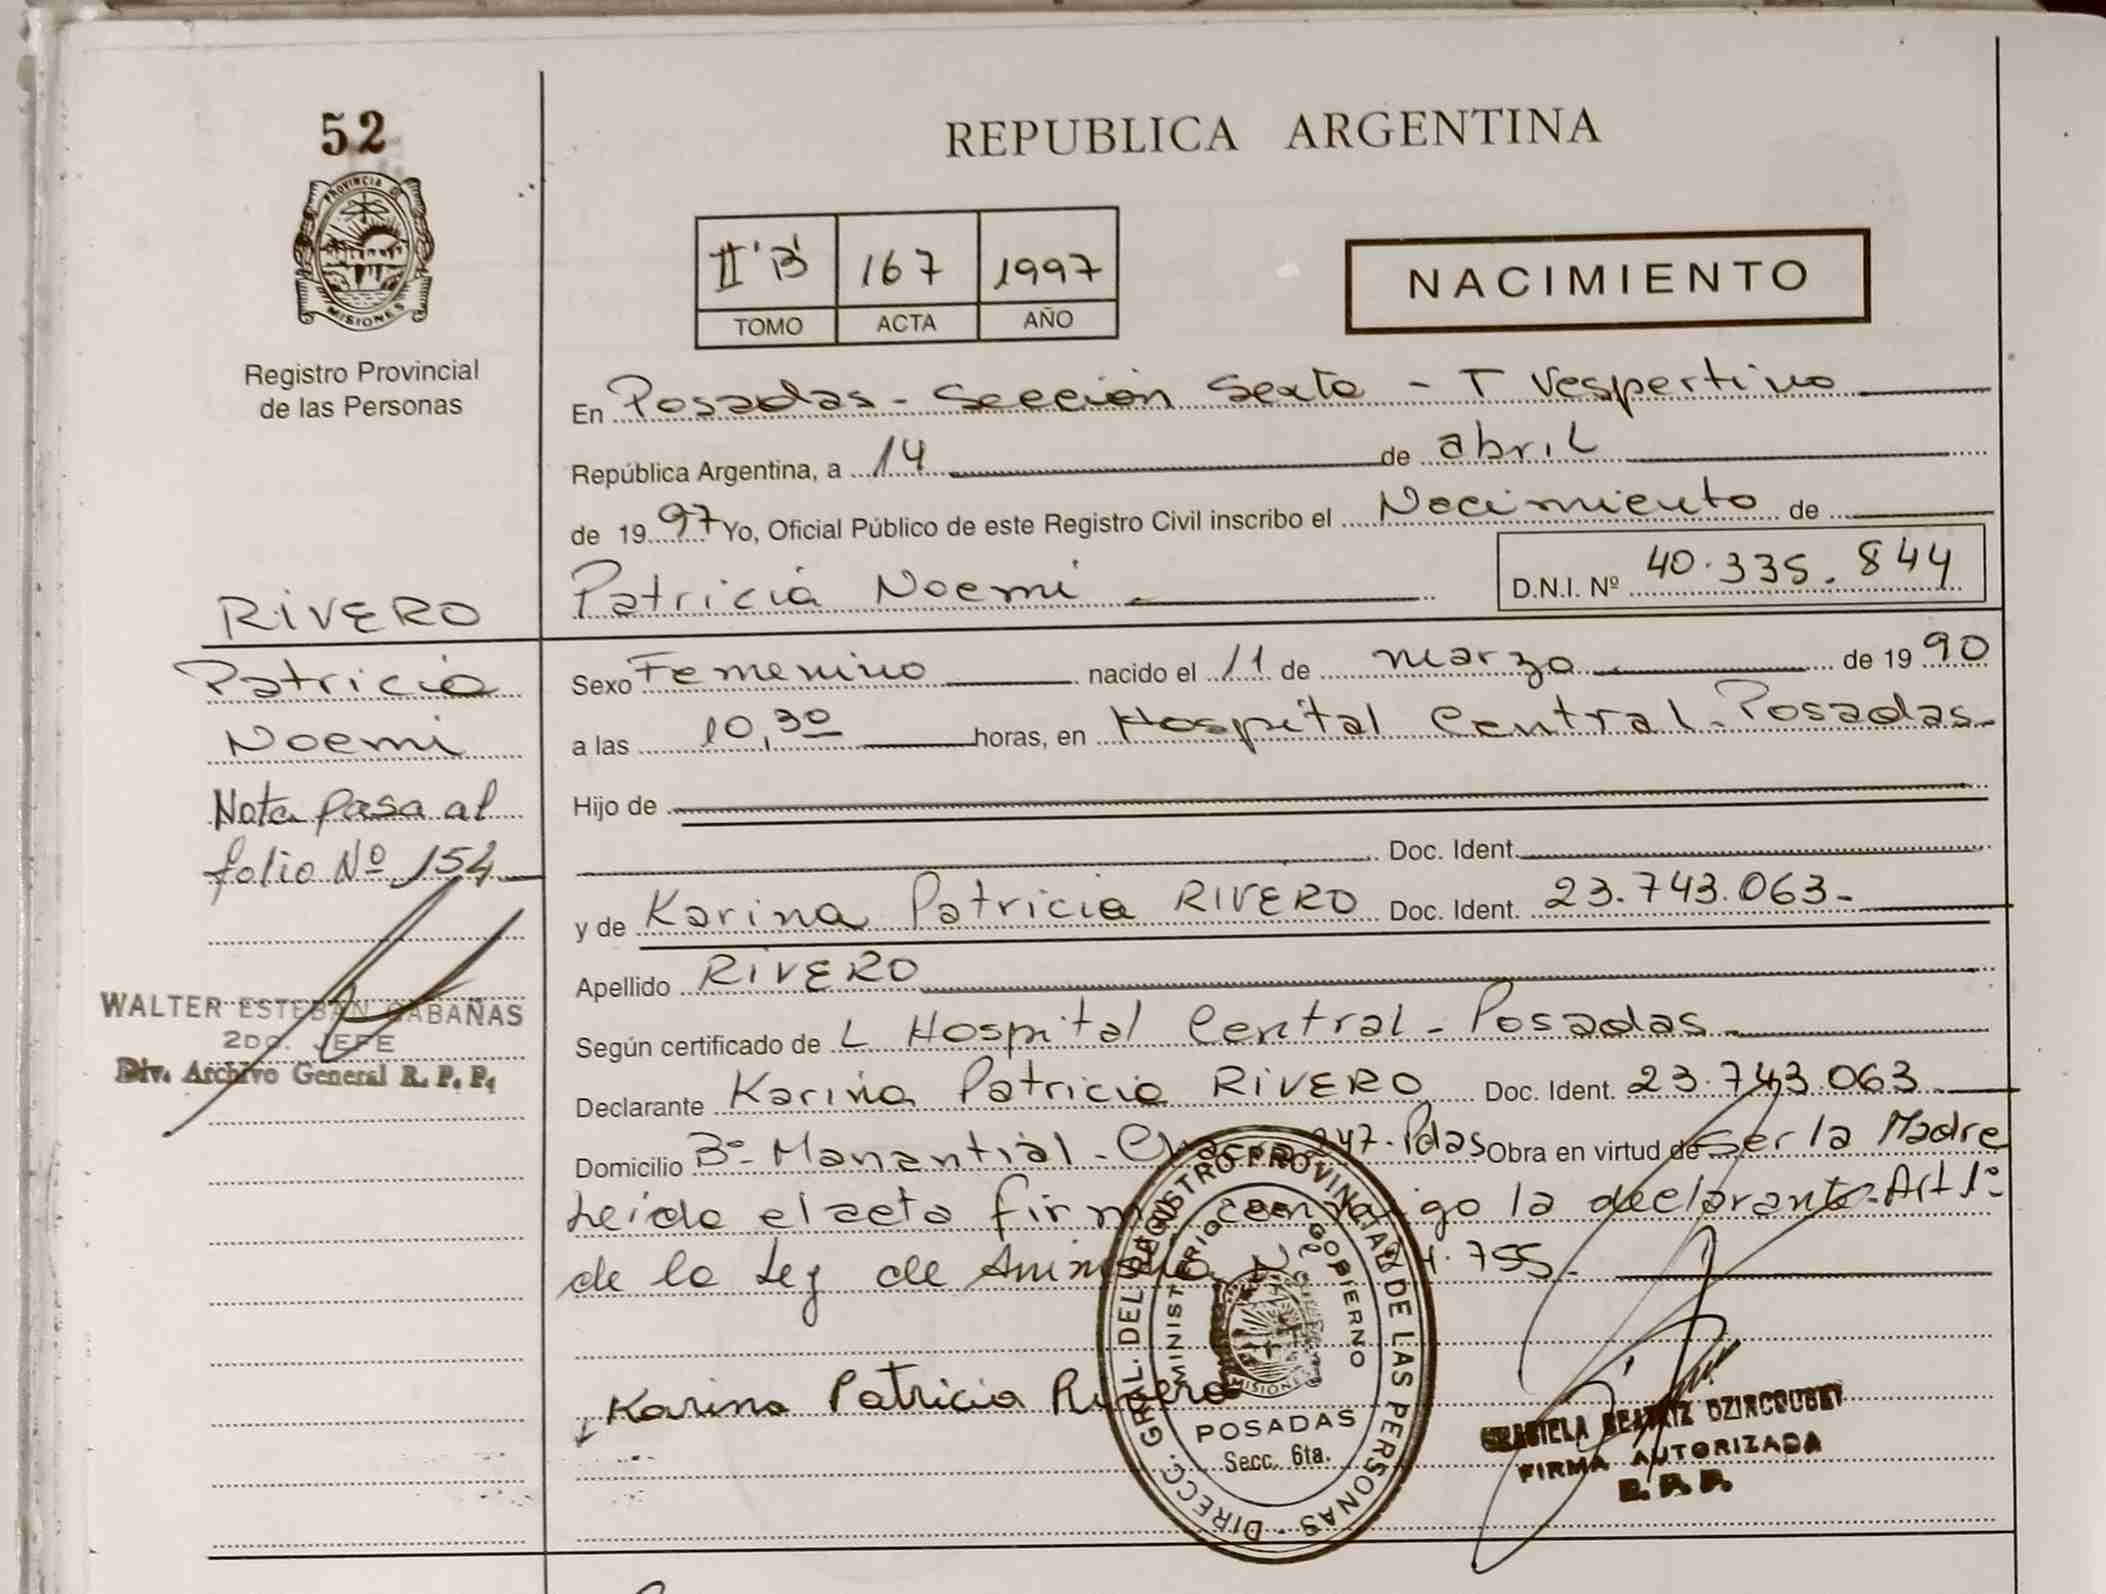 52
PROVINCIA D
MISIONES
Registro Provincial
de las Personas
RIVERO
Patricia
Noemi
Nota pasa al
folio Nº 154
WALTER ESTEBAN CABAÑAS
2DO. JEFE
Div. Archivo General R. P. P.
REPUBLICA ARGENTINA
II 'B' 167 1997
TOMO ACTA AÑO
NACIMIENTO
En Posadas - Sección Sexta - T Vespertino
República Argentina, a 14 de abril
de 1997 Yo, Oficial Público de este Registro Civil inscribo el Nacimiento de
Patricia Noemi D.N.I. Nº 40.335.844
Sexo Femenino nacido el 11 de marzo de 1990
a las 10,30 horas, en Hospital Central - Posadas
Hijo de
Doc. Ident.
y de Karina Patricia RIVERO Doc. Ident. 23.743.063-
Apellido RIVERO
Según certificado de L Hospital Central - Posadas
Declarante Karina Patricia RIVERO Doc. Ident. 23.743.063
Domicilio Bº Manantial - 247 - Pdas Obra en virtud de Ser la Madre
Leida el acta firma conmigo la declarante - Art 1º
de la Ley de Nº 755-
Karina Patricia Rivero
DIRECC. GRAL. DEL REGISTRO PROVINCIAL DE LAS PERSONAS
MINISTERIO DE GOBIERNO
MISIONES
POSADAS
Secc. 6ta.
GRACIELA BEATRIZ DZIRCOUBET
FIRMA AUTORIZADA
R. P. P.